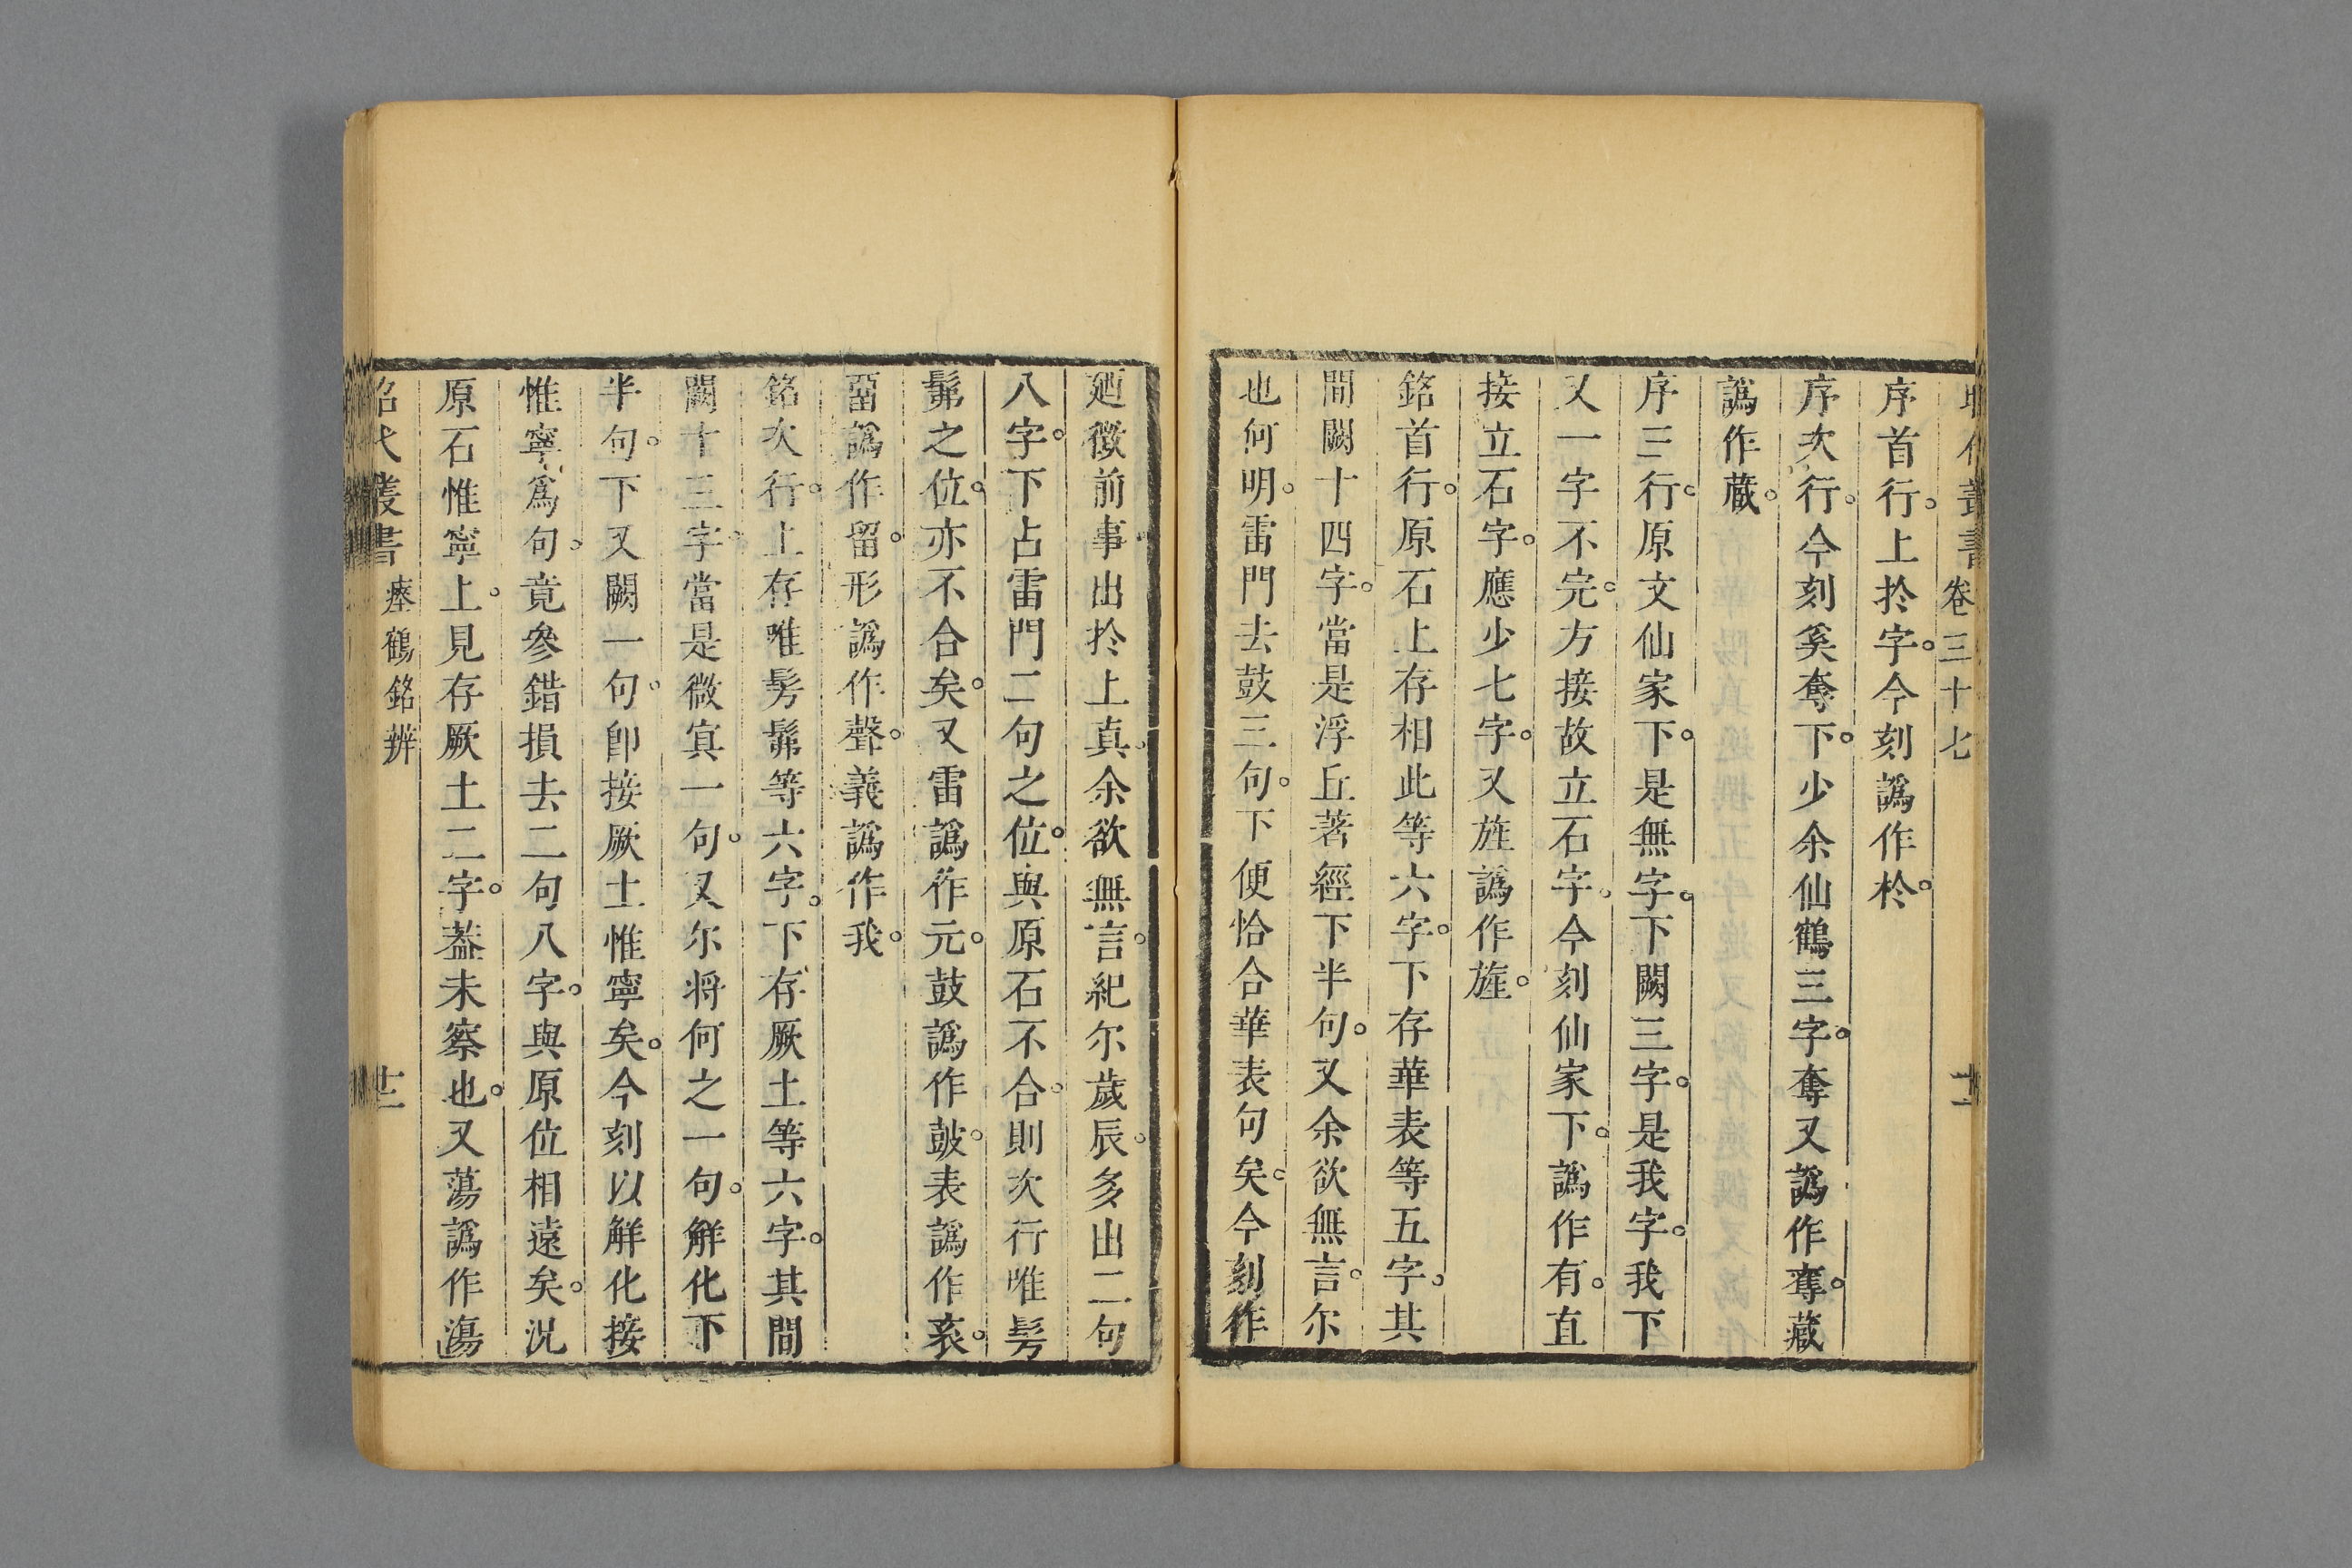 昭代叢書 卷三十七 十二
序首行。上扵字。今刻譌作於。
序次行。今刻奚奪下。少余仙鶴三字。奪又譌作奪。藏
譌作蔵。
序三行。原文仙家下。是無字。下闕三字。是我字。我下
又一字不完。方接故立石字。今刻仙家下。譌作有。直
接立石字。應少七字。又旌譌作旌。
銘首行。原石上存相此等六字。下存華表等五字。其
間闕十四字。當是浮丘著經下半句。又余欲無言。尔
也何明。雷門去鼓三句。下便恰合華表句矣。今刻作
廼徵前事出扵上真。余欲無言。紀尔歲辰。多出二句
八字。下占雷門二句之位。與原石不合。則次行唯髣
髴之位。亦不合矣。又雷譌作元。鼓譌作皷。表譌作𧘝。
畱譌作留。形譌作聲。義譌作我。
銘次行。上存唯髣髴等六字。下存厥土等六字。其間
闕十三字。當是微㝠一句。又尔將何之一句。解化下
半句。下又闕一句。卽接厥土惟寧矣。今刻以解化接
惟寧爲句。竟參錯損去二句八字。與原位相遠矣。況
原石惟寧上。見存厥土二字。葢未察也。又蕩譌作瀉
昭代叢書 瘞鶴銘辨 十二